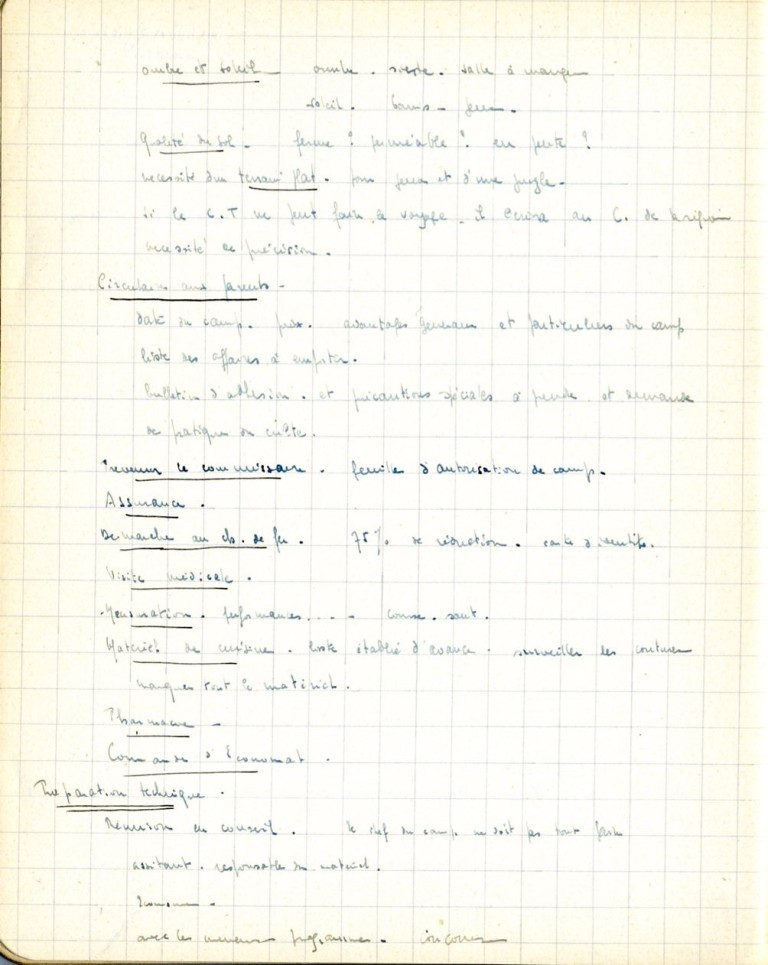 ombre et soleil ombre. sieste. salle à manger
soleil. bains - jeux.
Qualité du sol - ferme ? perméable ? en pente ?
nécessité d'un terrain plat. pour jeux et d'une jungle -
Si le C.T ne peut faire le voyage - il écrira au C. de
nécessité de précision.
Circulaire aux parents -
date du camp. prix. avantages généraux et particuliers du camp
liste des affaires à emporter.
bulletin d'adhésion. et précautions spéciales à prendre et demande
de pratique du culte.
Prévenir le commissaire. feuille d'autorisation de camp.
Assurance.
Démarche au ch. de fer. 75% de réduction. carte d'identité.
Visite médicale.
Mensuration. performances.... course. saut.
Matériel de cuisine. liste établie d'avance. surveiller les
marquer tout le matériel.
Pharmacie -
Commande d'Economat.
Préparation technique.
Réunion en conseil. le chef du camp ne doit pas tout faire
assistant. responsable du matériel.
Econome -
avec les programmes. concours